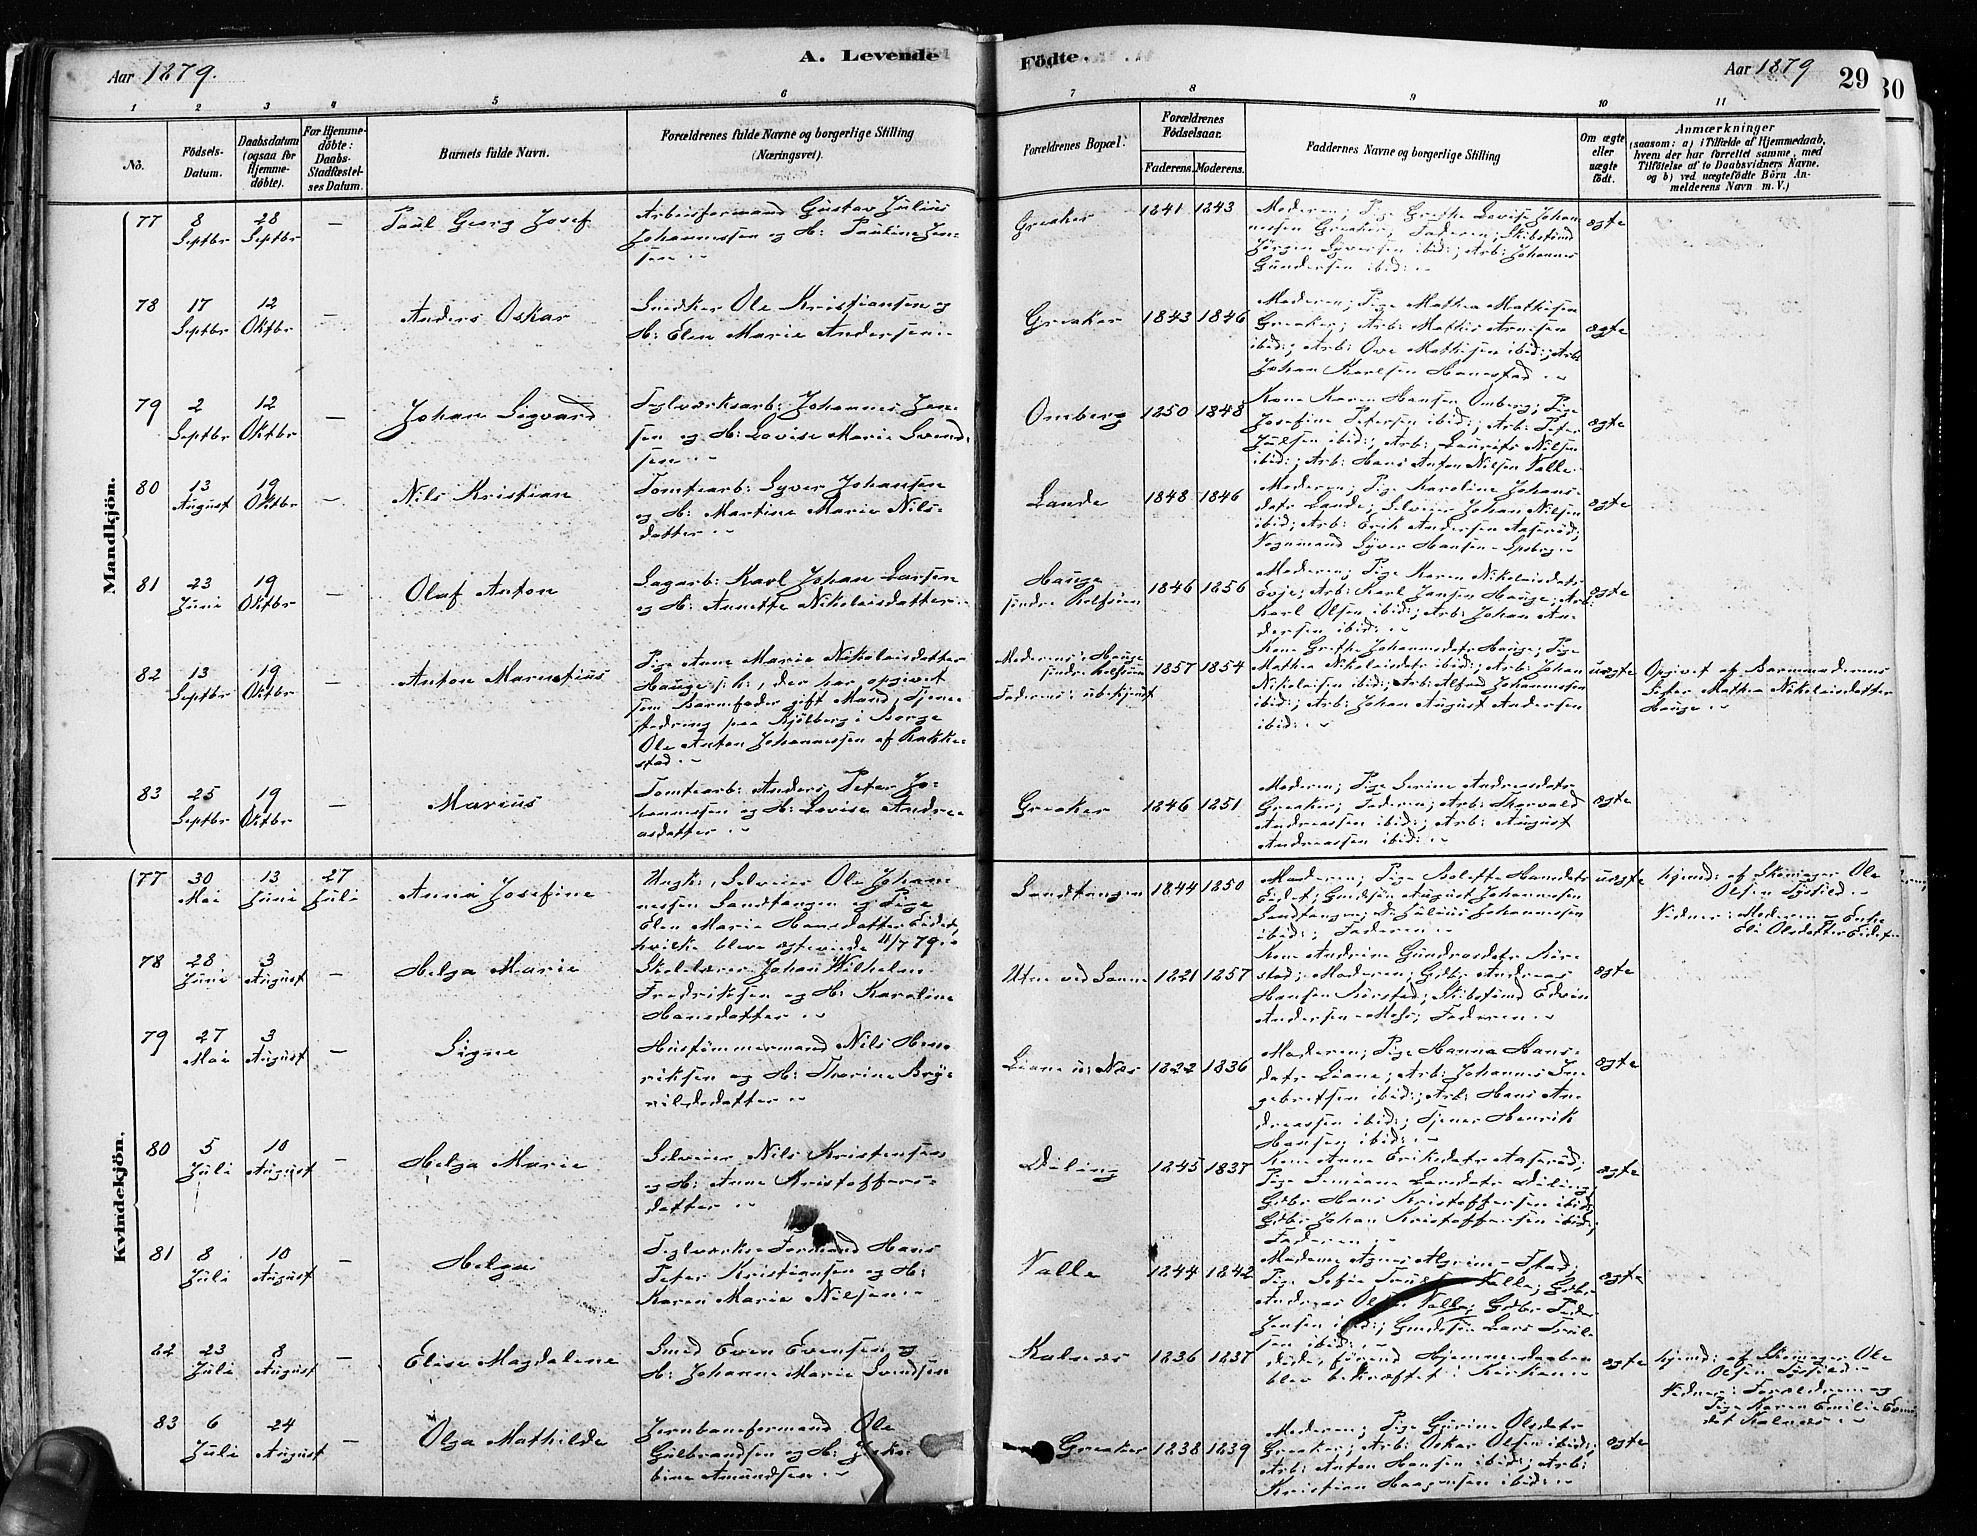 Aar 1879.
A. Levende
Födte.
Aar 1879
29
30
1 2 3 4 5 6
7 8 9 10 11
No.
Födsels-
Datum.
Daabsdatum
(ogsaa for
Hjemme-
döbte).
For Hjemme-
döbte:
Daabs-
Stadfæstel-
ses Datum.
Barnets fulde Navn.
Forældrenes fulde Navne og borgerlige Stilling
(Næringsvei).
Forældrenes Bopæl.
Forældrenes
Födselsaar.
Faderens.
Moderens.
Faddernes Navne og borgerlige Stilling
Om ægte
eller
uægte
födt.
Anmærkninger
(saasom: a) i Tilfælde af Hjemmedaab,
hvem der har forrettet samme, med
Tilföielse af to Daabsvidners Navne.
og b) ved uægtefödte Börn An-
melderens Navn m. V.)
Mandkjön.
77
8
Septbr
28
Septbr
—
Paul Georg Josef
Arbeidsformand Gustav Julius
Johannessen og H: Pauline Jen-
sen
Greaker
1841 1843
Moderen; Pige Grethe Lovise Johan
nessen Greaker; Faderen; Skibstömd
Jörgen Syversen ibid:; Arb: Johannes
Gundersen ibid:
ægte
78
17
Septbr
12
Oktbr
—
Anders Oskar
Snedker Ole Kristiansen og
H: Elen Marie Andersen
Greaker
1843 1846
Moderen; Pige Mathea Mathisen
Greaker; Arb: Mathis Arnesen
ibid:; Arb: Ove Mathisen ibid:; Arb:
Johan Karlsen Hanestad
ægte
79
2
Septbr
12
Oktbr
—
Johan Sigvard
Teglværksarb: Johannes Jen-
sen og H: Lovise Marie Svend
sen
Omberg
1850 1848
Kone Karen Hansen Omberg; Pige
Josefine Petersen ibid:; Arb: Peter
Julsen ibid:; Arb: Laurits Nilsen
ibid:; Arb: Hans Anton Nilsen Valle
ægte
80
13
August
19
Oktbr
—
Nils Kristian
Tomtearb: Syver Johansen
og H: Martine Marie Nils-
datter
Lande
1848 1846
Moderen; Pige Karoline Johans-
datr Lande; Selveier Johan Nilsen
ibid; Arb: Erik Andersen Aaseröd;
Vognmand Syver Hansen
ægte
81
23
Juni
19
Oktbr
—
Olaf Anton
Sagarb: Karl Johan Larsen
og H: Annette Nikolaisdatter
Hauge
söndre Rolfsöen
1846 1856
Moderen; Pige Karen Nikolaisdatr
Evje; Arb: Karl Jensen Hauge; Arb:
Karl Olsen ibid:; Arb: Johan An-
dersen ibid:
ægte
82
13
Septbr
19
Oktbr
—
Anton Marentius
Pige Anne Marie Nikolaisdatter
Hauge s: h:, der har opgivet
som Barnefader gift Mand, Tjene
stedring paa Kjölberg i Borge
Ole Anton Johannessen af Rakke-
stad
Moderens: Hauge
söndre Rolfsöen
Faderens: ubekjent
1857 1854
Kone Grethe Johannesdatr Hauge; Pige
Mathea Nikolaisdatr ibid:; Arb: Johan
Nikolaisen ibid:; Arb: Alfred Johannessen
ibid:; Arb: Johan August Andersen
ibid:
uægte
Opgivet af Barnmoderens
Söster Mathea Nikolaisdatter
Hauge
83
25
Septbr
19
Oktbr
—
Marius
Tomtearb: Anders Peter Jo-
hannessen og H: Lovise Andre-
asdatter
Greaker
1846 1851
Moderen; Pige Serine Andreasdatr
Greaker; Faderen; Arb: Thorvald
Andreassen ibid:; Arb: August
Andreassen ibid:
ægte
Kvindekjön.
77
30
Mai
13
Juni
27
Juli
Anna Josefine
Ungk:, Selveier Ole Johan
nessen Sandtangen og Pige
Elen Marie Hansdatter Eidet,
hvilke bleve ægteviede 4/7 79.
Sandtangen
1844 1850
Moderen; Pige Kolette Hansdatr
Eidet; Gmdsön August Johannessen
Sandtangen; Do Julius Johannessen
ibid:; Faderen
uægte
hjemd: af Skomager Ole
Olsen
Vidner: Moderen og Enke
Eli Olsdatter Eidet
78
28
Juni
3
August
—
Helga Marie
Skolelærer Johan Wilhelm
Fredriksen og H: Karoline
Hansdatter
Utne ved Sanne
1821 1857
Kone Andrine Gundrosdatr Kör-
stad; Moderen; Gdbr Andreas
Hansen Körstad; Skibstömd Edvin
Andersen Moss; Faderen
ægte
79
27
Mai
3
August
—
Signe
Hustömmermand Nils Hen
riksen og H: Thorine Bryn
nildsdatter
Liane u: Næs
1822 1836
Moderen; Pige Hanna Hans-
datr Liane; Arb: Johannes In
gebretsen ibid:; Arb: Hans An-
dreassen ibid:; Tjener Henrik
Hansen ibid:
ægte
80
5
Juli
10
August
—
Helga Marie
Selveier Nils Kristensen
og H: Anne Kristoffers-
datter
Diling
1845 1837
Kone Anne Eriksdatr Aaseröd;
Pige Simiane Larsdatr Diling;
Gdbr Hans Kristoffersen ibid:;
Gdbr Johan Kristoffersen ibid:;
Faderen
ægte
81
8
Juli
10
August
—
Helga
Teglværks Formand Hans
Peter Kristiansen og H:
Karen Marie Nilsen
Valle
1844 1842
Madame Agnes
Pige Sofie Valle; Gdbr
Andreas Olsen Valle; Gdbr Peder
Jensen ibid:; Gmdsön Lars
sen ibid:
ægte
82
23
Juli
8
August
—
Elise Magdalene
Smed Even Evensen og
H: Johanne Marie Svendsen
Kalnæs
1836 1837
död, förend Hjemmedaaben
blev bekræftet i Kirken
ægte
hjemd: af Skomager Ole
Olsen
Vidner: Forældrene og
Pige Karen Emilie Evens
dat Kalnæs
83
6
Juli
24
August
—
Olga Mathilde
Jernbaneformand Ole
Gulbrandsen og H: Jako-
bine Amundsen
Greaker
1838 1839
Moderen; Pige Gurine Olsdatr
Greaker; Arb: Oskar Olsen ibid:;
Arb: Anton Hansen ibid:; Arb:
Kristian Haagensen ibid:
ægte